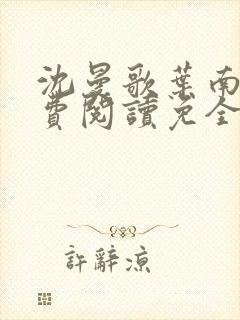 沈曼歌葉南
費閱讀免全
許辭涼